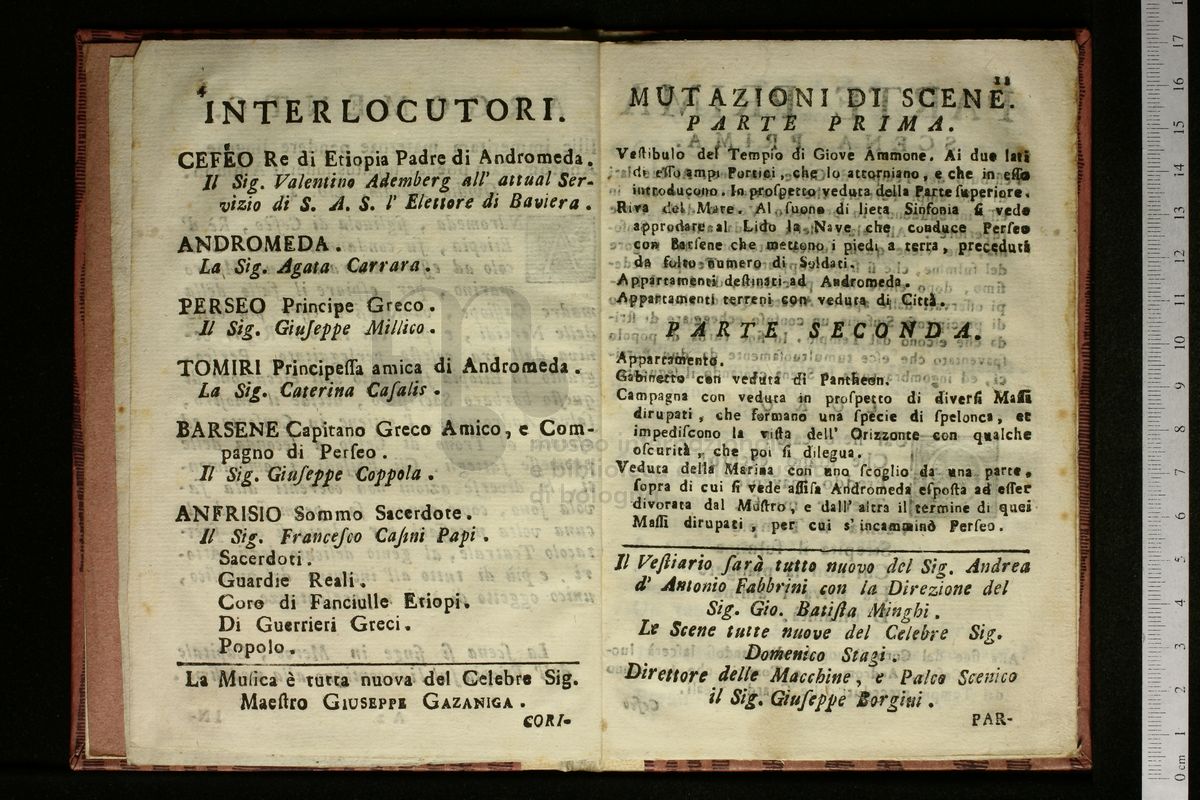 4
INTERLOCUTORI.
CEFEO Re di Etiopia Padre di Andromeda.
Il Sig. Valentino Ademberg all' attual Ser-
vizio di S. A. S. l' Elettore di Baviera.
ANDROMEDA.
La Sig. Agata Carrara.
PERSEO Principe Greco.
Il Sig. Giuſeppe Millico.
TOMIRI Principeſſa amica di Andromeda.
La Sig. Caterina Caſalis.
BARSENE Capitano Greco Amico, e Com-
pagno di Perseo.
Il Sig. Giuſeppe Coppola.
ANFRISIO Sommo Sacerdote.
Il Sig. Franceſco Caſini Papi.
Sacerdoti.
Guardie Reali.
Coro di Fanciulle Etiopi.
Di Guerrieri Greci.
Popolo.
La Muſica è tutta nuova del Celebre Sig.
Maeſtro GIUSEPPE GAZANIGA.
CORI-
11
MUTAZIONI DI SCENE.
PARTE PRIMA.
Veſtibulo del Tempio di Giove Ammone. Ai due lati
de eſſo ampi Portici, che lo attorniano, e che in eſſo
introducono. In proſpetto veduta della Parte ſuperiore.
Riva del Mare. Al ſuono di lieta Sinfonia ſi vede
approdare al Lido la Nave che conduce Perſeo
con Barſene che mettono i piedi a terra, preceduti
da folto numero di Soldati.
Appartamenti deſtinati ad Andromeda.
Appartamenti terreni con veduta di Città.
PARTE SECONDA.
Appartamento.
Gabinetto con veduta di Pantheon.
Campagna con veduta in proſpetto di diverſi Maſſi
dirupati, che formano una ſpecie di ſpelonca, et
impediſcono la viſta dell' Orizzonte con qualche
oscurità, che poi ſi dilegua.
Veduta della Marina con uno ſcoglio da una parte,
ſopra di cui ſi vede aſſiſa Andromeda eſpoſta ad eſſer
divorata dal Moſtro, e dall' altra il termine di quei
Maſſi dirupati, per cui s' incamminò Perſeo.
Il Veſtiario ſarà tutto nuovo del Sig. Andrea
d' Antonio Fabbrini con la Direzione del
Sig. Gio. Batiſta Minghi.
Le Scene tutte nuove del Celebre Sig.
Domenico Stagi.
Direttore delle Macchine, e Palco Scenico
il Sig. Giuſeppe Borgini.
PAR-
0 cm 1 2 3 4 5 6 7 8 9 10 11 12 13 14 15 16 17